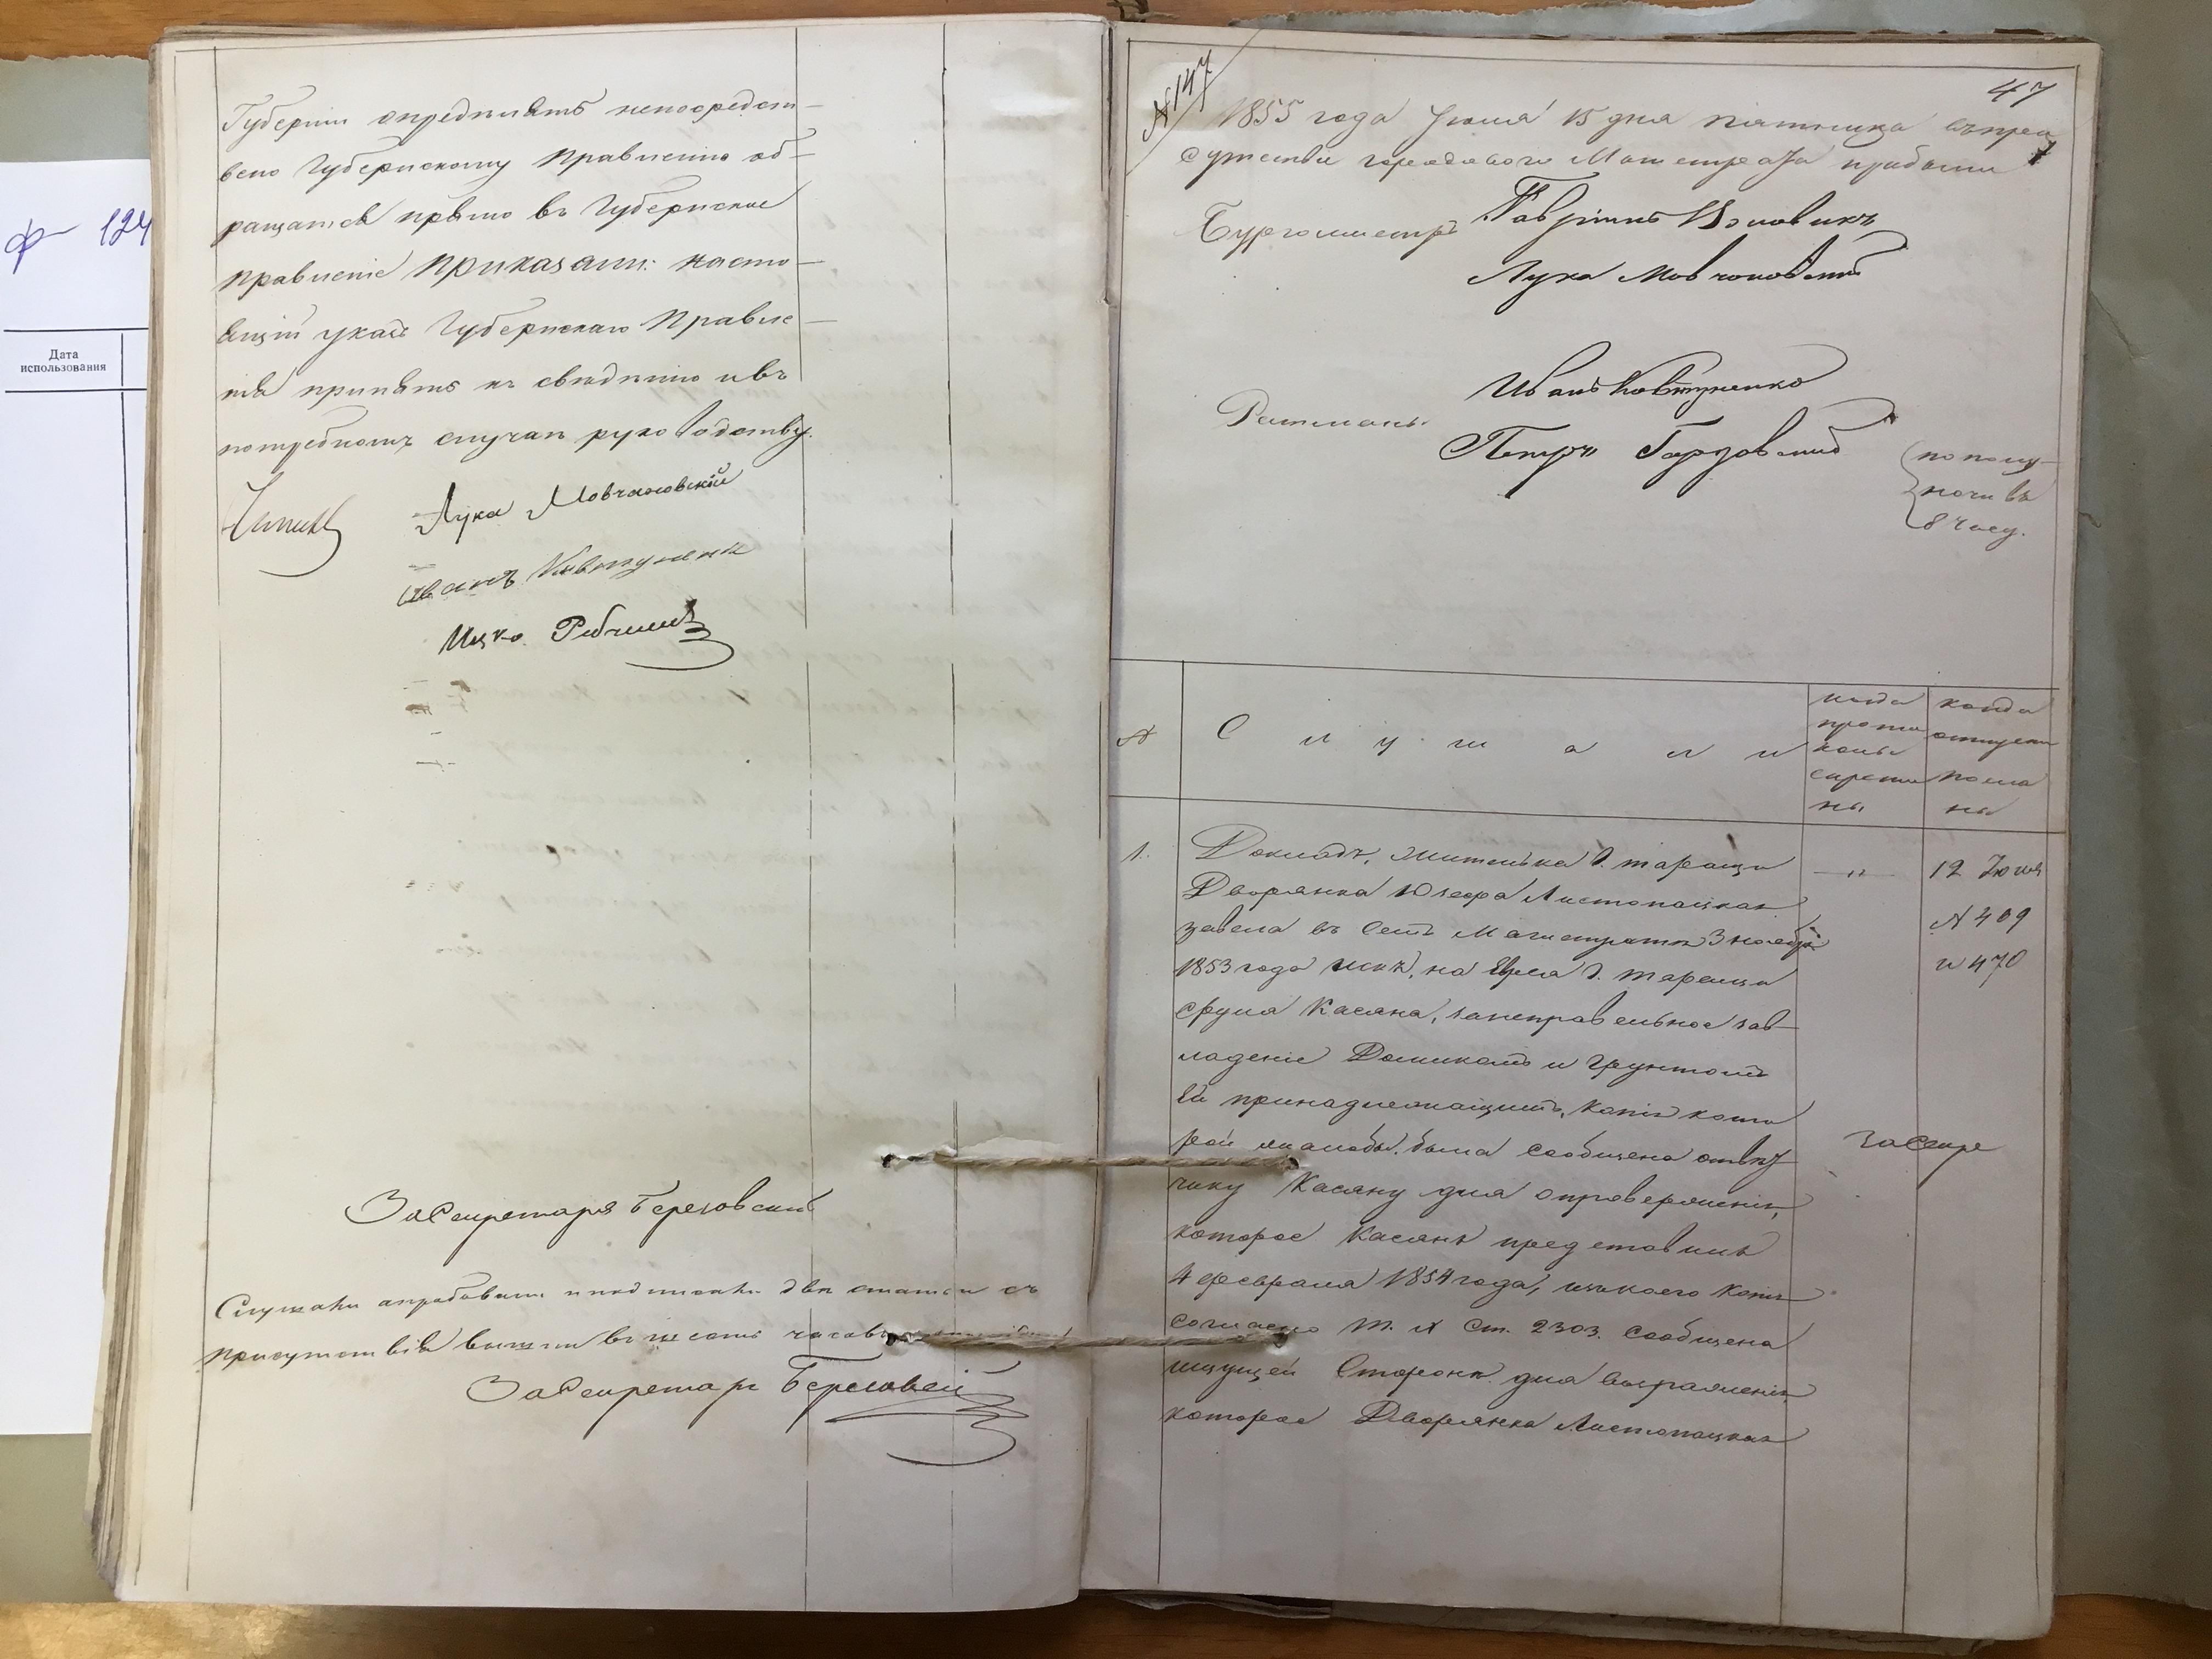 ф 124
Дата
использования
Губерніи опредѣлятъ непосредст-
вено Губернскому Правленію об-
ращатся прямо въ Губернское
Правленіе Приказали: насто-
ящій указъ Губернскаго Правле-
нія принять къ свѣдѣнію и въ
потребномъ случаѣ руководству.
Лука Мовчановскій
Иванъ Ковтуненко
Ицко
За Секретаря Березовскій
Слушали апробовали и подписали двѣ статьи съ
присутствія вышли въ часовъ
За Секретаря Березовскій
№ 147
47
1855 года Іюля 15 дня пятница въ при
сутствіи городоваго Магистрата прибыли
Бургомистръ Гавріилъ
Лука Мовчановскій
Иванъ Ковтуненко
Ратманы
Петръ Гордовскій
по полу-
ночи въ
8 часу.
№
Слушали
когда
прото
колы
скрепле
ны
когда
отпуски
посла
ны
1.
Докладъ, жителька г. таращи
Дворянка Юзефа Листопацкая
завела въ семъ Магистратѣ 3 ноября
1853 года искъ, на Еврея г. таращи
Сруля Касяна, за неправельное зав-
ладеніе Домикомъ и грунтомъ
ей принадлежащимъ, копія кото
рой жалобы была сообщена отвѣт
чику Касяну для опроверженія,
которое Касянъ представилъ
4 февраля 1854 года, изъ коего копія
согласно т. X Ст. 2303. сообщена
ищущей Сторонѣ для выраженія,
которое Дворянка Листопацкая
— " —
12 Іюля
№ 409
и 470
За Секре